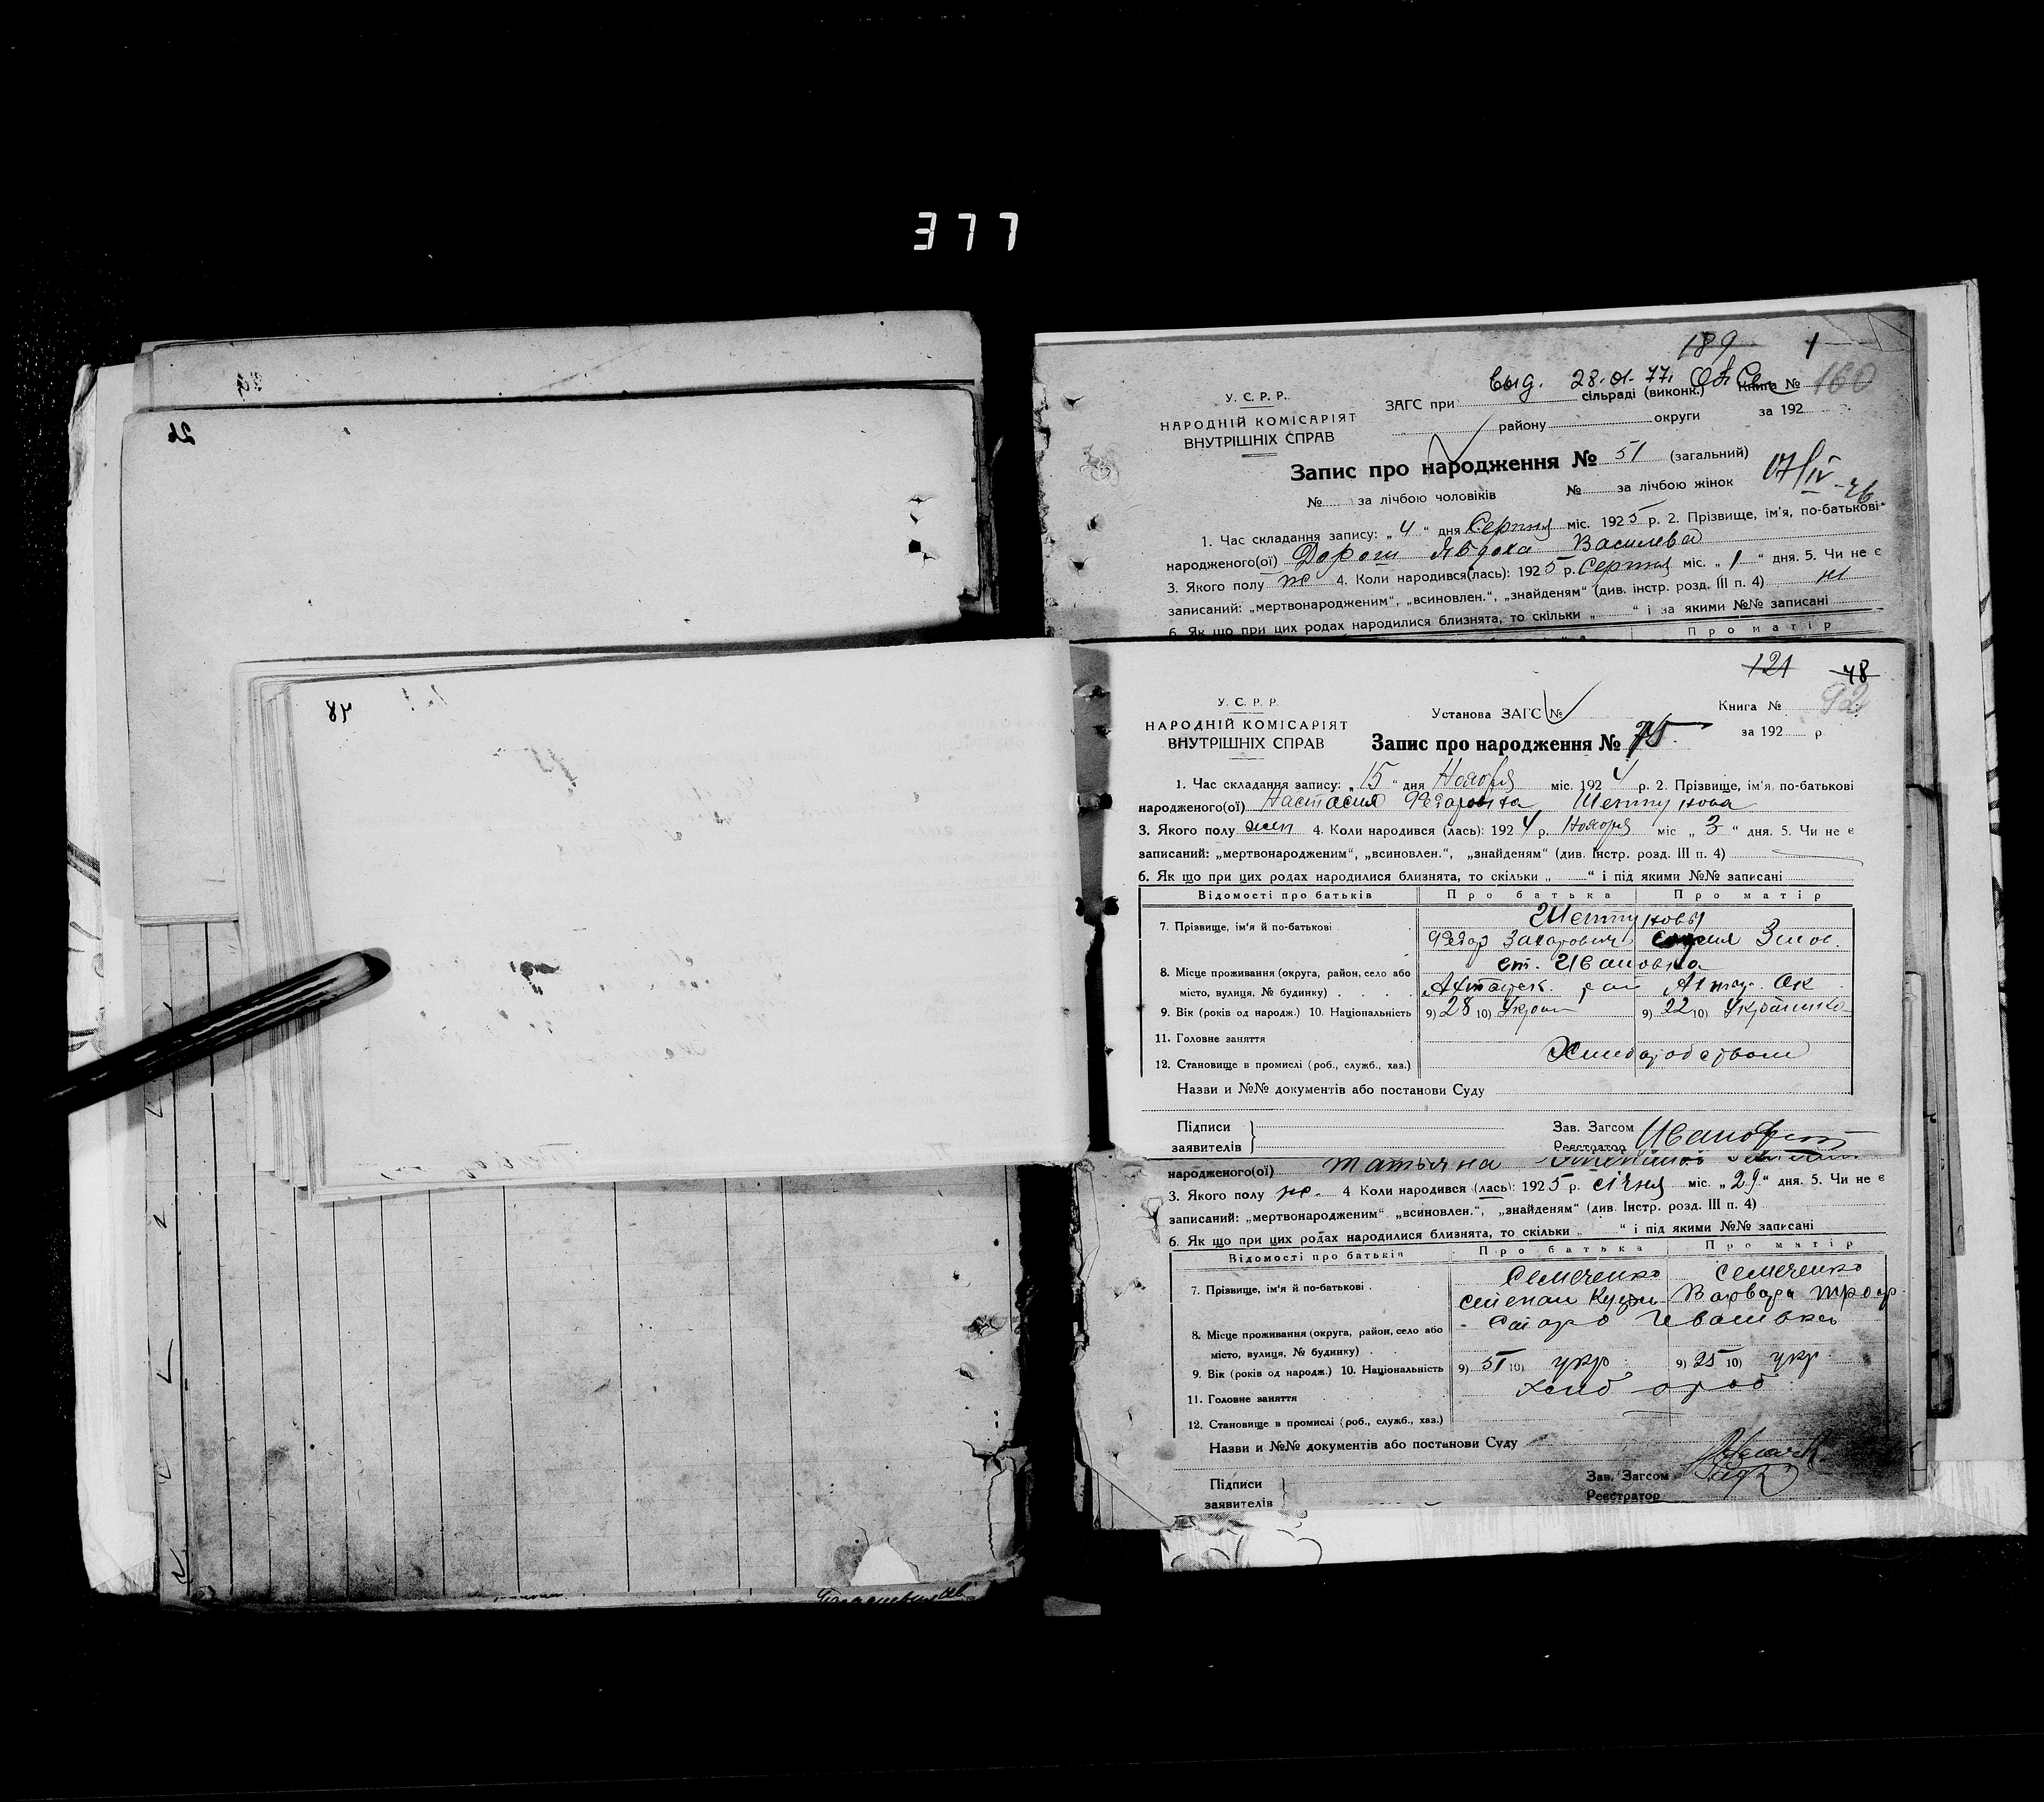 377
189 1
выд. 28.01.77.
160
У. С. Р. Р.
НАРОДНІЙ КОМІСАРІЯТ
ВНУТРІШНІХ СПРАВ
ЗАГС при сільраді (виконк.) Книга №
району округи за 192
Запис про народження № 51 (загальний)
№ за лічбою чоловіків № за лічбою жінок
1. Час складання запису: „ 4 “ дня Серпня міс. 1925 р. 2. Прізвище, ім'я, по-батькові
народженого(ої) Дорош Явдоха Василева
3. Якого полу ж 4. Коли народився(лась): 1925 р. Серпня міс. „ 1 “ дня. 5. Чи не є
записаний: „мертвонародженим“, „всиновлен.“, „знайденям“ (див. інстр. розд. III п. 4) ні
6. Як що при цих родах народилися близнята, то скільки „ “ і за якими №№ записані
Про матір
121 48
92
У. С. Р. Р.
НАРОДНІЙ КОМІСАРІЯТ
ВНУТРІШНІХ СПРАВ
Установа ЗАГС № Книга №
Запис про народження № 75 за 192 р
1. Час складання запису: „ 15 “ дня Ноября міс. 1924 р. 2. Прізвище, ім'я, по-батькові
народженого(ої) Настасия Федоровна Шептунова
3. Якого полу жен 4. Коли народився (лась): 1924 р. Ноября міс „ 3 “ дня. 5. Чи не є
записаний: „мертвонародженим“, „всиновлен.“, „знайденям“ (див. Інстр. розд. III п. 4)
6. Як що при цих родах народилися близнята, то скільки „ “ і під якими №№ записані
Відомості про батьків Про батька Про матір
7. Прізвище, ім'я й по-батькові Шептуновы
Федор Захарович
8. Місце проживання (округа, район, село або ст. Ивановка
місто, вулиця, № будинку) Ахтырск. рай Ахтыр. Ок
9. Вік (років од народж.) 10. Національність 9) 28 10) Украин 9) 22 10) Украинка
11. Головне заняття
12. Становище в промислі (роб., служб., хаз.)
Назви и №№ документів або постанови Суду
Підписи
заявителів
Зав. Загсом
Реєстратор
народженого(ої) Татьяна
3. Якого полу ж. 4 Коли народився (лась): 1925 р. січня міс. „ 29 “ дня. 5. Чи не є
записаний: „мертвонародженим“ „всиновлен.“, „знайденям“ (див. Інстр. розд. III п. 4)
6. Як що при цих родах народилися близнята, то скільки „ “ і під якими №№ записані
Відомості про батьків Про батька Про матір
7. Прізвище, ім'я й по-батькові Семеченко Семеченко
Степан Кузм Варвара Троф
8. Місце проживання (округа, район, село або Старо Ивановка
місто, вулиця, № будинку)
9. Вік (років од народж.) 10. Національність 9) 51 10) укр 9) 25 10) укр
11. Головне заняття хліб ороб
12. Становище в промислі (роб., служб., хаз.)
Назви и №№ документів або постанови Суду
Підписи
заявителів
Зав. Загсом
Реєстратор